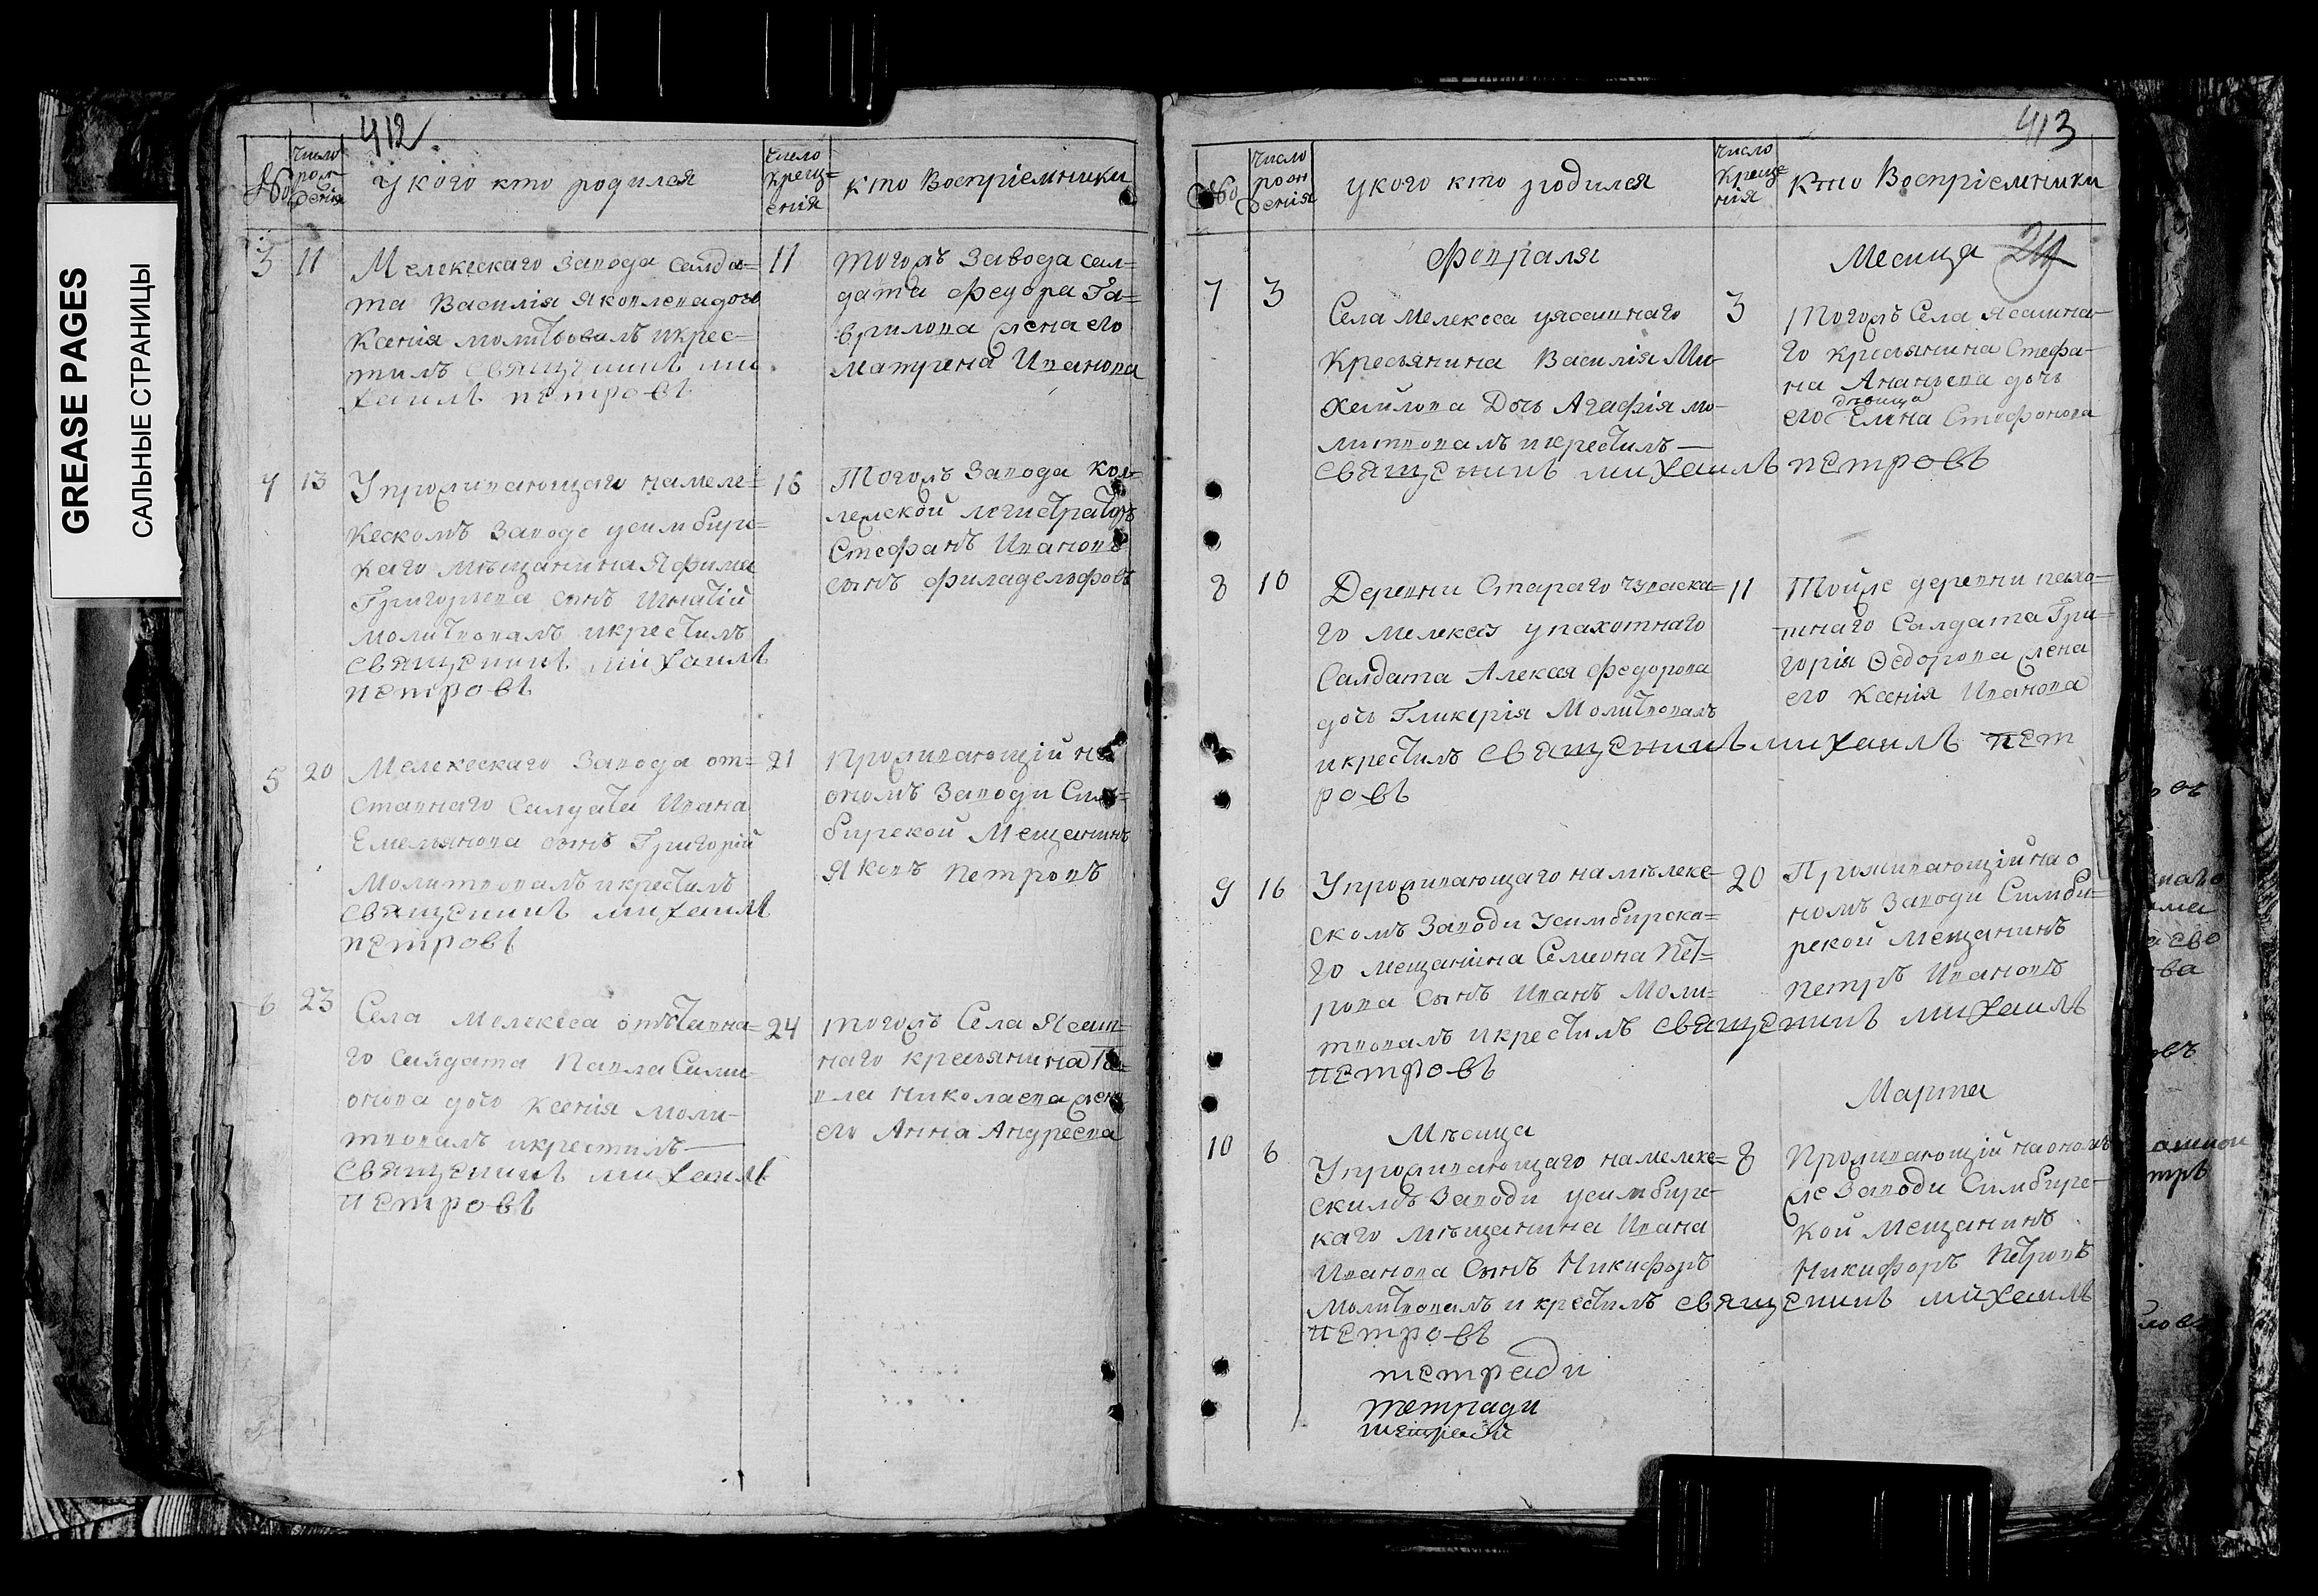 GREASE PAGES
САЛЬНЫЕ СТРАНИЦЫ
412
№
число рож дения
у кого кто родился
число крещ= ения
кто Воспрiемники
3 11
Мелекескаго Завода салда=
та Василiя Яковлева дочь
Ксенiя молитвовалъ икрес=
тилъ священникъ ми
хаилъ петровъ
11
тогожъ Завода сал=
дата Федора Га=
врилова жена его
матрена Иванова
4 13
У проживающаго намеле=
кескомъ Заводе усимбирс=
каго мѣщанина Яфима
Григорьева сынъ Игнатiй
молитвовалъ икрестилъ
священникъ михаилъ
петровъ
16
Тогожъ Завода кол=
лежской легистраторъ
Стефанъ Ивановъ
сынъ филадельфовъ
5 20
Мелекескаго Завода от=
ставнаго Салдата Ивана
Емельянова сынъ Григорiй
Молитвовалъ икрестилъ
священникъ михаилъ
петровъ
21
Проживающiй на
ономъ Заводи Сим=
бирской Мещанинъ
Яковъ Петровъ
6 23
Села Мелекеса отставна=
го салдата Павла Сими=
онова дочь Ксенiя моли-
твовалъ икрестилъ—
священникъ михаилъ
петровъ
24
тогожъ Села Ясаш=
наго кресьянина Па=
вла Николаева жена
его Анна Андреева
413
№
число рож дения
у кого кто родился
число крещe= нiя
Кто Воспрiемники
Февраля
Месица
7 3
Села Мелекеса уясашнаго
Кресьянина Василiя Ми-
хайлова Дочь Агафiя мо-
литвовалъ икрестилъ—
священникъ михаилъ петровъ
3
Тогожъ Села Ясашна-
го кресьянина Стефа-
на Ананьева дочь
девица
его Елена Стефанова
8 10
Деревни Стараго чуваска=
го Мелекеса упахотнаго
Салдата Алексея Федорова
дочь Гликерiя Молитвовалъ
икрестилъ священникъ михаилъ пет
ровъ
11
Тойже деревни пахо=
тнаго Салдата Гри=
горiя Ѳедорова жена
его Ксенiя Иванова
9 16
Упроживающаго намелеке-
скомъ Заводи Усимбирска=
го мещанина Семиона Пет=
рова Сынъ Иванъ Моли=
твовалъ икрестилъ священникъ михаилъ
петровъ
20
Проживающiй на о
номъ Заводи Симби=
рской мещанинъ
Петръ Ивановъ
Мѣсица
Марта
10 6
Упроживающаго намелеке=
скимъ Заводи усимбирс-
каго мѣщанина Ивана
Иванова Сынъ Никифоръ
Молитвовалъ и крестилъ священникъ михаилъ
петровъ
8
Проживающiй на ономъ
же Заводи Симбирс-
кой мещанинъ
Никифоръ Петровъ
тетради
тетради
тетради